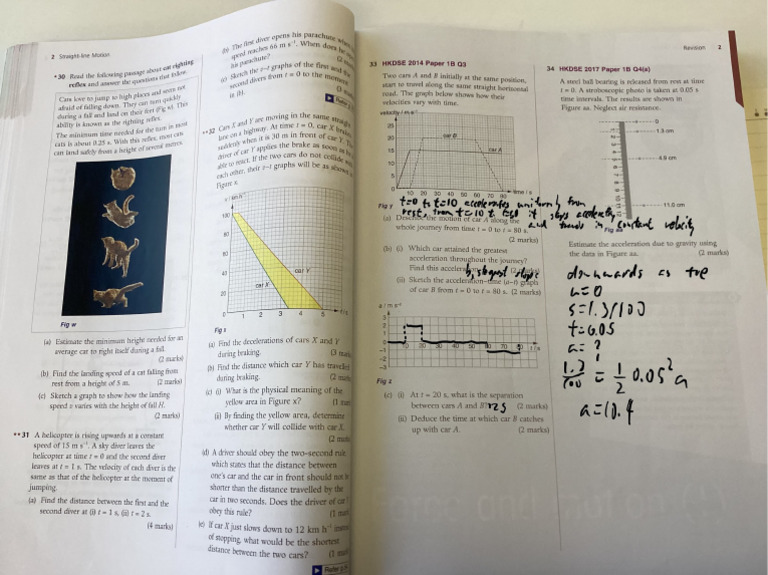 2 Straight-line Motion
*30 Read the following passage about cat righting
reflex and answer the questions that follow.
Cats love to jump to high places and seem not
afraid of falling down. They can turn quickly
during a fall and land on their feet (Fig w). This
ability is known as the righting reflex.
The minimum time needed for the turn in most
cats is about 0.25 s. With this reflex, most cats
can land safely from a height of several metres.
Fig w
(a) Estimate the minimum height needed for an
average cat to right itself during a fall.
(2 marks)
(b) Find the landing speed of a cat falling from
rest from a height of 5 m.
(2 marks)
(c) Sketch a graph to show how the landing
speed v varies with the height of fall H.
(2 marks)
**31 A helicopter is rising upwards at a constant
speed of 15 m s⁻¹. A sky diver leaves the
helicopter at time t = 0 and the second diver
leaves at t = 1 s. The velocity of each diver is the
same as that of the helicopter at the moment of
jumping.
(a) Find the distance between the first and the
second diver at (i) t = 1 s, (ii) t = 2 s.
(4 marks)
(b) The first diver opens his parachute when
speed reaches 66 m s⁻¹. When does he
his parachute?
(c) Sketch the v–t graphs of the first and the
second divers from t = 0 to the moment
in (b).
**32 Cars X and Y are moving in the same straight
lane on a highway. At time t = 0, car X brakes
suddenly when it is 30 m in front of car Y. The
driver of car Y applies the brake as soon as he
able to react. If the two cars do not collide with
each other, their v–t graphs will be as shown in
Figure x.
100
80
60
40
20
0
car Y
car X
1 2 3 4 5
(a) Find the decelerations of cars X and Y
during braking.
(b) Find the distance which car Y has travelled
during braking.
(c) (i) What is the physical meaning of the
yellow area in Figure x?
(ii) By finding the yellow area, determine
whether car Y will collide with car X.
(d) A driver should obey the two-second rule
which states that the distance between
one's car and the car in front should not be
shorter than the distance travelled by the
car in two seconds. Does the driver of car Y
obey this rule?
(e) If car X just slows down to 12 km h⁻¹ instead
of stopping, what would be the shortest
distance between the two cars?
Revision 2
33 HKDSE 2014 Paper 1B Q3
Two cars A and B initially at the same position,
start to travel along the same straight horizontal
road. The graph below shows how their
velocities vary with time.
velocity / m s⁻¹
25
20
15
10
5
0
car B
car A
10 20 30 40 50 60 70 80
time / s
t=0 to t=10 accelerates uniformly from
rest, from t=10 to t=60 it stops accelerating
and travels in constant velocity
(a) Describe the motion of car A along the
whole journey from time t = 0 to t = 80 s.
(2 marks)
(b) (i) Which car attained the greatest
acceleration throughout the journey?
Find this acceleration.
(ii) Sketch the acceleration–time (a–t) graph
of car B from t = 0 to t = 80 s. (2 marks)
a / m s⁻²
3
2
1
0
−1
−2
−3
t / s
Fig z
(c) (i) At t = 20 s, what is the separation
between cars A and B? (2 marks)
(ii) Deduce the time at which car B catches
up with car A. (2 marks)
34 HKDSE 2017 Paper 1B Q4(a)
A steel ball bearing is released from rest at time
t = 0. A stroboscopic photo is taken at 0.05 s
time intervals. The results are shown in
Figure aa. Neglect air resistance.
0
1.3 cm
4.9 cm
11.0 cm
Estimate the acceleration due to gravity using
the data in Figure aa. (2 marks)
downwards as +ve
u=0
s=1.3/100
t=0.05
a=?
1.3/100 = 1/2 0.05² a
a=10.4